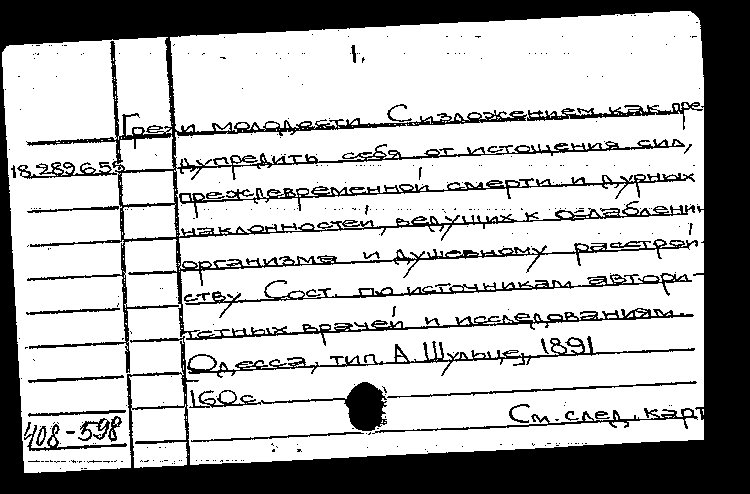 1.
Грехи молодости. С изложением как пре-
18.289.6.55
дупредить себя от истощения сил,
преждевременной смерти и дурных
наклонностей, ведущих к ослаблени
организма и душевному расстрой-
ству. Сост. по источникам автори-
тетных врачей и исследованиям.
Одесса, тип. А. Шульце, 1891
160 с.
408-598
См. след. карт